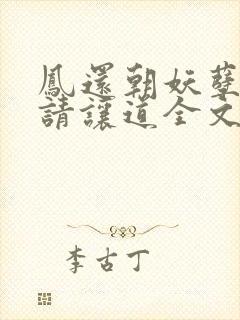 鳳還朝妖孽
請讓道全文
李古丁